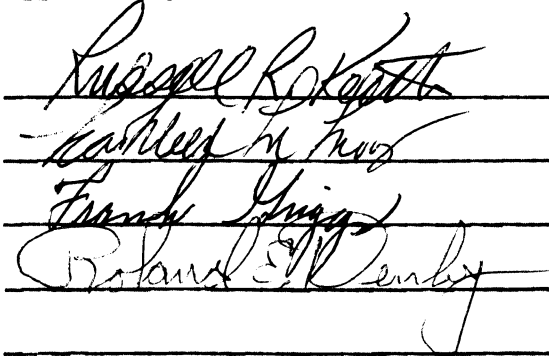 Russell R. Keith
Kathleen M Moog
Frank Griggs
Roland E Denby